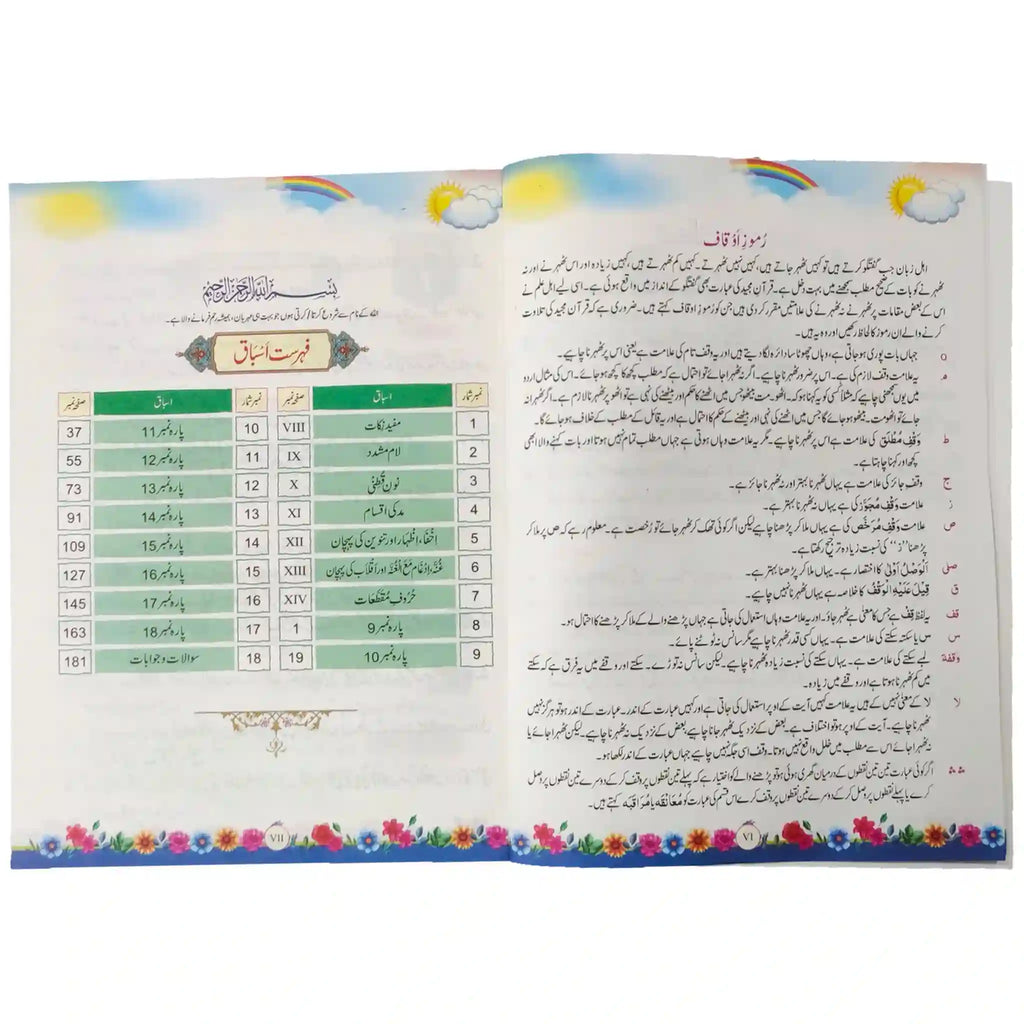 رُموزِ اَوْقاف
اہل زبان جب گفتگو کرتے ہیں تو کہیں ٹھہر جاتے ہیں، کہیں نہیں ٹھہرتے۔ کہیں کم ٹھہرتے ہیں، کہیں زیادہ اور اس ٹھہرنے اور نہ
ٹھہرنے کو بات کے صحیح مطلب سمجھنے میں بہت دخل ہے۔ قرآن مجید کی عبارت بھی گفتگو کے انداز میں واقع ہوئی ہے۔ اسی لیے اہل علم نے
اس کے بعض مقامات پر ٹھہرنے نہ ٹھہرنے کی علامتیں مقرر کر دی ہیں جن کو رموزِ اوقاف کہتے ہیں۔ ضروری ہے کہ قرآن مجید کی تلاوت
کرنے والے ان رموز کا لحاظ رکھیں اور وہ یہ ہیں۔
o جہاں بات پوری ہو جاتی ہے، وہاں چھوٹا سا دائرہ لگا دیتے ہیں اور یہ وقف تام کی علامت ہے یعنی اس پر ٹھہرنا چاہیے۔
مـ یہ علامت وقف لازم کی ہے۔ اس پر ضرور ٹھہرنا چاہیے۔ اگر نہ ٹھہرا جائے تو احتمال ہے کہ مطلب کچھ کا کچھ ہو جائے۔ اس کی مثال اردو
میں یوں سمجھنی چاہیے کہ مثلاً کسی کو یہ کہنا ہو کہ۔ اٹھو۔ مت بیٹھو جس میں اٹھنے کا حکم اور بیٹھنے کی نہی ہے تو اٹھو پر ٹھہرنا لازم ہے۔ اگر ٹھہرا نہ
جائے تو اٹھو مت۔ بیٹھو ہو جائے گا جس میں اٹھنے کی نہی اور بیٹھنے کے حکم کا احتمال ہے اور یہ قائل کے مطلب کے خلاف ہو جائے گا۔
ط وَقفِ مُطْلَق کی علامت ہے اس پر ٹھہرنا چاہیے۔ مگر یہ علامت وہاں ہوتی ہے جہاں مطلب تمام نہیں ہوتا اور بات کہنے والا ابھی
کچھ اور کہنا چاہتا ہے۔
ج وقف جائز کی علامت ہے یہاں ٹھہرنا بہتر اور نہ ٹھہرنا جائز ہے۔
ز علامت وَقْفِ مُجَوَّز کی ہے یہاں نہ ٹھہرنا بہتر ہے۔
ص علامت وَقفِ مُرَخَّص کی ہے یہاں ملا کر پڑھنا چاہیے لیکن اگر کوئی تھک کر ٹھہر جائے تو رُخصت ہے۔ معلوم رہے کہ ص پر ملا کر
پڑھنا "ز" کی نسبت زیادہ ترجیح رکھتا ہے۔
صلی اَلْوَصْلُ اَوْلیٰ کا اختصار ہے۔ یہاں ملا کر پڑھنا بہتر ہے۔
ق قِیْلَ عَلَیْهِ الْوَقْفُ کا خلاصہ ہے یہاں ٹھہرنا نہیں چاہیے۔
قف یہ لفظ قِفْ ہے جس کا معنی ہے ٹھہر جاؤ۔ اور یہ علامت وہاں استعمال کی جاتی ہے جہاں پڑھنے والے کے ملا کر پڑھنے کا احتمال ہو۔
س س یا سکتہ سکتے کی علامت ہے۔ یہاں کسی قدر ٹھہرنا چاہیے مگر سانس نہ ٹوٹنے پائے۔
وقفة لمبے سکتے کی علامت ہے۔ یہاں سکتے کی نسبت زیادہ ٹھہرنا چاہیے۔ لیکن سانس نہ توڑے۔ سکتے اور وقفے میں یہ فرق ہے کہ سکتے
میں کم ٹھہرنا ہوتا ہے اور وقفے میں زیادہ۔
لا لا کے معنی نہیں کے ہیں یہ علامت کہیں آیت کے اوپر استعمال کی جاتی ہے اور کہیں عبارت کے اندر۔ عبارت کے اندر ہو تو ہرگز نہیں
ٹھہرنا چاہیے۔ آیت کے اوپر ہو تو اختلاف ہے۔ بعض کے نزدیک ٹھہر جانا چاہیے، بعض کے نزدیک نہ ٹھہرنا چاہیے۔ لیکن ٹھہرا جائے یا
نہ ٹھہرا جائے اس سے مطلب میں خلل واقع نہیں ہوتا۔ وقف اسی جگہ نہیں چاہیے جہاں عبارت کے اندر لکھا ہو۔
اگر کوئی عبارت تین تین نقطوں کے درمیان گھری ہوئی ہو تو پڑھنے والے کو اختیار ہے کہ پہلے تین نقطوں پر وقف کر کے دوسرے تین نقطوں پر وصل
کرے یا پہلے نقطوں پر وصل کر کے دوسرے تین نقطوں پر وقف کرے اس قسم کی عبارت کو مُعَانَقَه یا مُرَاقَبَه کہتے ہیں۔
VI
بِسْمِ اللّٰهِ الرَّحْمٰنِ الرَّحِيْمِ
اللہ کے نام سے شروع کرتا/کرتی ہوں جو بہت ہی مہربان، ہمیشہ رحم فرمانے والا ہے۔
فہرست اَسْبَاق
نمبر شمار اسباق صفحہ نمبر نمبر شمار اسباق صفحہ نمبر
1 مفید نکات VIII 10 پارہ نمبر 11 37
2 لام مشدد IX 11 پارہ نمبر 12 55
3 نون قُطْنِی X 12 پارہ نمبر 13 73
4 مد کی اقسام XI 13 پارہ نمبر 14 91
5 اِخْفَاء، اِظْہار اور تنوین کی پہچان XII 14 پارہ نمبر 15 109
6 غُنَّہ، اِدْغَام مَعَ الْغُنَّہ اور اقلاب کی پہچان XIII 15 پارہ نمبر 16 127
7 حُرُوفِ مُقَطَّعَات XIV 16 پارہ نمبر 17 145
8 پارہ نمبر 9 1 17 پارہ نمبر 18 163
9 پارہ نمبر 10 19 18 سوالات و جوابات 181
VII